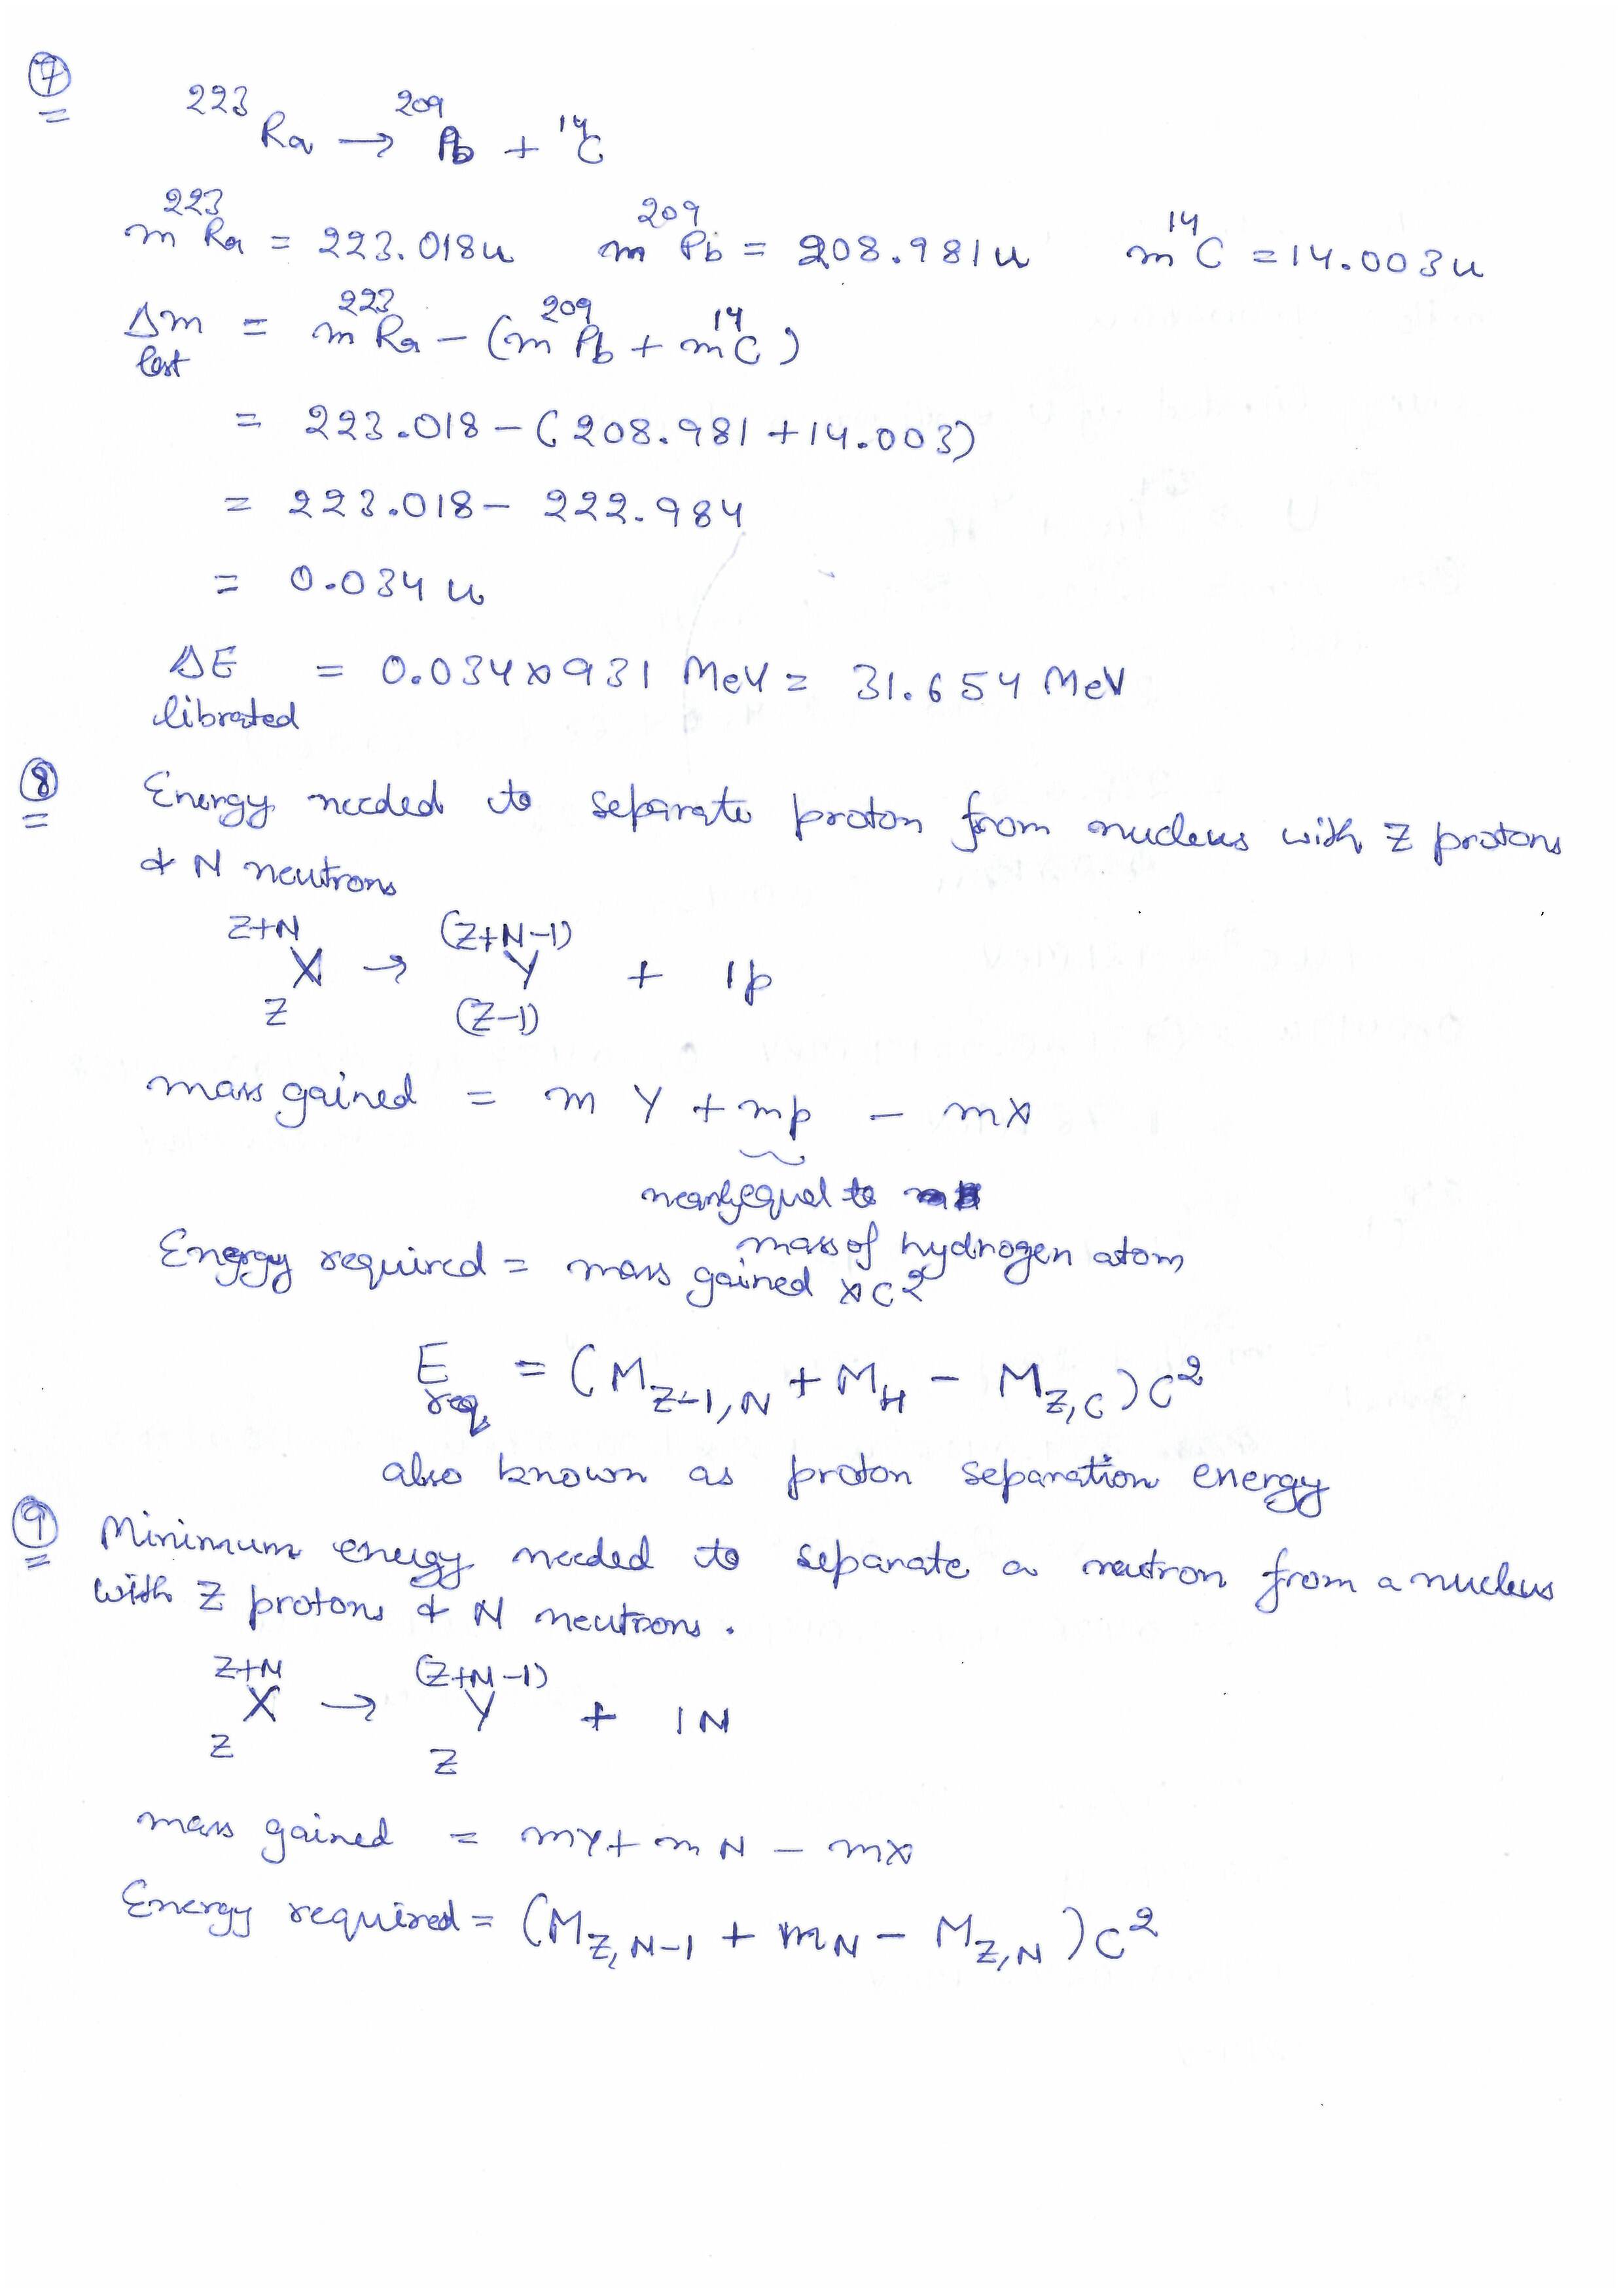 7
²²³Ra → ²⁰⁹Pb + ¹⁴C
m ²²³Ra = 223.018u m ²⁰⁹Pb = 208.981u m ¹⁴C = 14.003u
Δm lost = m ²²³Ra − (m ²⁰⁹Pb + m ¹⁴C)
= 223.018 − (208.981 + 14.003)
= 223.018 − 222.984
= 0.034 u
ΔE librated = 0.034 × 931 MeV = 31.654 MeV
8 Energy needed to separate proton from nucleus with Z protons
& N neutrons
Z+N (Z+N−1)
X → Y + 1p
Z (Z−1)
mass gained = m Y + mp − mX
nearly equal to
mass of hydrogen atom
Energy required = mass gained × c²
E req = (M Z−1,N + M H − M Z,C)C²
also known as proton separation energy
9 Minimum energy needed to separate a neutron from a nucleus
with Z protons & N neutrons.
Z+N (Z+N−1)
X → Y + 1N
Z Z
mass gained = mY + mN − mX
Energy required = (M Z,N−1 + m N − M Z,N)C²